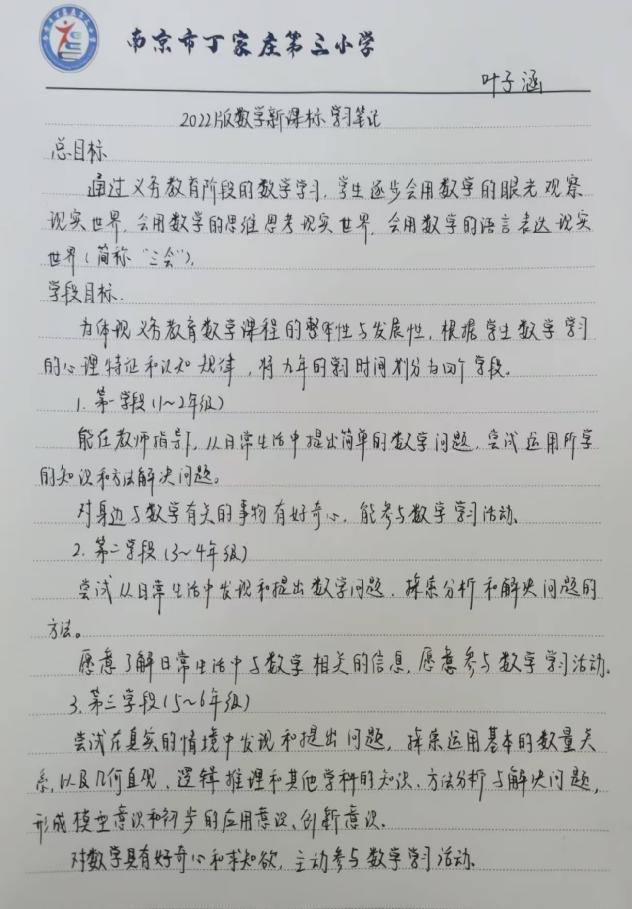 南京市丁家庄第三小学
叶子涵
2022版数学新课标学习笔记
总目标
通过义务教育阶段的数学学习,学生逐步会用数学的眼光观察
现实世界,会用数学的思维思考现实世界,会用数学的语言表达现实
世界(简称“三会”)。
学段目标.
为体现义务教育数学课程的整体性与发展性,根据学生数学学习
的心理特征和认知规律,将九年的学习时间划分为四个学段。
1.第一学段(1~2年级)
能在教师指导下,从日常生活中提出简单的数学问题,尝试运用所学
的知识和方法解决问题。
对身边与数学有关的事物有好奇心,能参与数学学习活动。
2.第二学段(3~4年级)
尝试从日常生活中发现和提出数学问题,探索分析和解决问题的
方法。
愿意了解日常生活中与数学相关的信息,愿意参与数学学习活动。
3.第三学段(5~6年级)
尝试在真实的情境中发现和提出问题,探索运用基本的数量关
系,以及几何直观、逻辑推理和其他学科的知识、方法分析与解决问题,
形成模型意识和初步的应用意识、创新意识。
对数学具有好奇心和求知欲,主动参与数学学习活动。